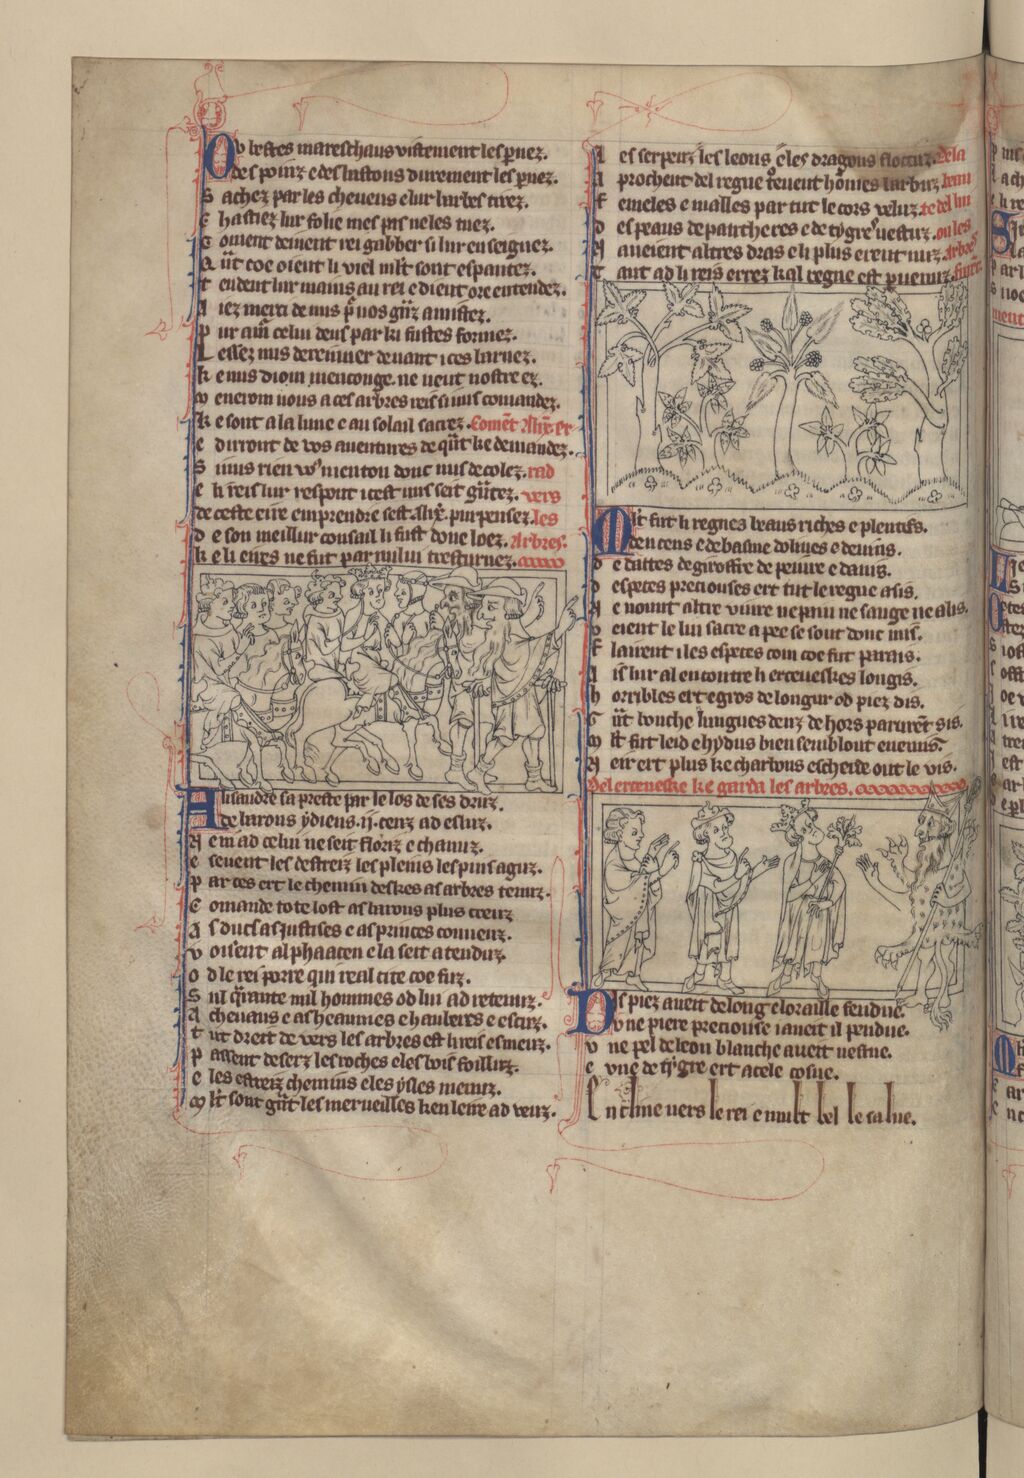 Ou lestes mareschaus vistement les p̱nez.
de s poinz e des bastons durement les p̱nez.
S achez par les cheueus e lur barbes tirez.
E hastiez lur folie mes pas ne les tuez.
C ouient deiuent rei gabber si lur enseignez.
Q ūt coe oient li viel ml̄t sont espantez.
T endent lur mains au rei e dient ore entendez.
A iez merci de nus p̄ uos gūz amistez.
P ur am̄ celui deus par ki fustes formez.
L essez nus deremier deuant ices barnez.
k e nus diom menconge. ne ueut nostre ez.
M enerom uous a ces arbres reis si nus comandez.
k e sont a la lune e au solail sacrez. Coment Alix̄ er
E dirront de vos auentures de qūt ke demandez.
S i nus rien vo⁹ mentou donc nus decolez. rad
E li reis lur respont icest nus seit gūtez. vers
de ceste eire emprendre sest Alix̄. purpensez. les
d e son meillur consail li fust doue loez. Arbres.
k e li eires ne fut par nului tresturnez.
Alisandre sa preste par le los de ses druz.
de barons ydiens .ij. cenz ad esluz.
N em ad celui ne seit floriz e chanuz.
E seuent les destreiz les pleins les puis aguz.
P ar ces ert le chemin deskes as arbres tenuz.
C omande tote lost as barons plus creuz
A s ducs as justises e as princes conneuz.
V oisent al phaacen e la seit atenduz.
O d le rei porre qui real cite coe fuz.
S ul q̄rante mil hommes od lui ad retenuz.
A cheuaus e as heaumes e hauberes e escuz.
T ut dreit de vers les arbres est li reis esmeuz.
P assent deserz les roches e les bois foilluz.
E les estreiz chemins e les ysles menuz.
M l̄t sont gūt les merueilles ken leire ad veuz.
A es serpenz les leons e les dragons de la
A prochent del regne treuent hōmes barbuz beau
F emeles e malles par tut le cors veluz. te del liu
D es peaus de pantheres e de tygre⁹ uestuz. ou les
N aueient altres dras e li plus erent nuz. Arbres
T ant ad li reis errez kal regne est p̱uenuz.
Ml̄t fut li regnes beaus riches e plentifs.
dencens e de basme doliues e deuins.
D e dattes de giroffre de peiure e dauis.
D especes preciouses ert tut le regne asis.
N e nount altre viure ne pain ne sauge ne alis.
V eient le liu sacre a pee se sont donc mis.
F lairent i les especes com coe fut parais.
A is lur al encontre li erceueskes longis.
H orribles ert e gros de longur od piez dis.
G ūt bouche lungues denz de hors parurēt sis.
M l̄t fut leid e hydus bien semblout enemis.
N eir ert plus ke charbons escherde out le vis.
Del erceueske ke garda les arbres.
Dis piez aueit de long e loraille fendue.
D une piere preciouse i aueit il pendue.
V ne pel de leon blanche aueit uestue.
E vne de tygre ert a cele cosue.
E ncline uers le rei e mult bel le salue.